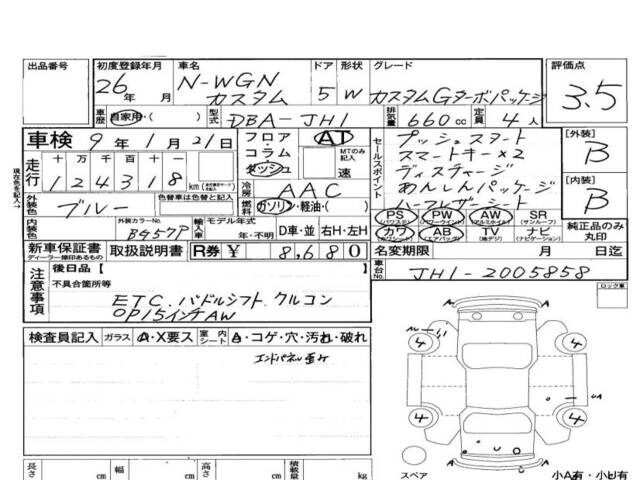 出品番号 初度登録年月 車名 ドア 形状 グレード 評価点
26年 月 N-WGN カスタム 5 W カスタムGターボパッケージ 3.5
車歴 自家用・( ) 型式 DBA-JH1 排気量 660cc 定員 4人
車検 9年1月21日 フロア・コラム・ダッシュ AT MTのみ記入 速
セールスポイント プッシュスタート
スマートキー×2
ディスチャージ
あんしんパッケージ
ハーフレザーシート
[外装] B
[内装] B
走行 十万 万 千 百 十 1 2 4 3 1 8 km
冷房 AAC
外装色 ブルー 色替車は色替と記入 燃料 ガソリン・軽油・( )
内装色 外装カラーNo. BG57P 輸入車 モデル年式 年・不明 D車・並 右H・左H
PS (パワステ) PW (パワーウインド) AW (アルミホイル) SR (サンルーフ)
カワ AB (エアバッグ) TV (地デジ) ナビ (ナビゲーション)
純正品のみ丸印
新車保証書 ディーラー捺印あるもの 取扱説明書 R券 ¥ 8,680 名変期限 月 日迄
車台No. JH1-2005858
注意事項 後日品【 】
不具合箇所等
ETC、パドルシフト、クルコン
OP15インチAW
ロック車
検査員記入 ガラス A・X要ス 室内シート A・コゲ・穴・汚れ・破れ
エンドパネル歪み
4 4
4 4
A
U
スペア 小A有・小U有
長さ cm 幅 cm 高さ cm 積載量 kg
現在色を記入